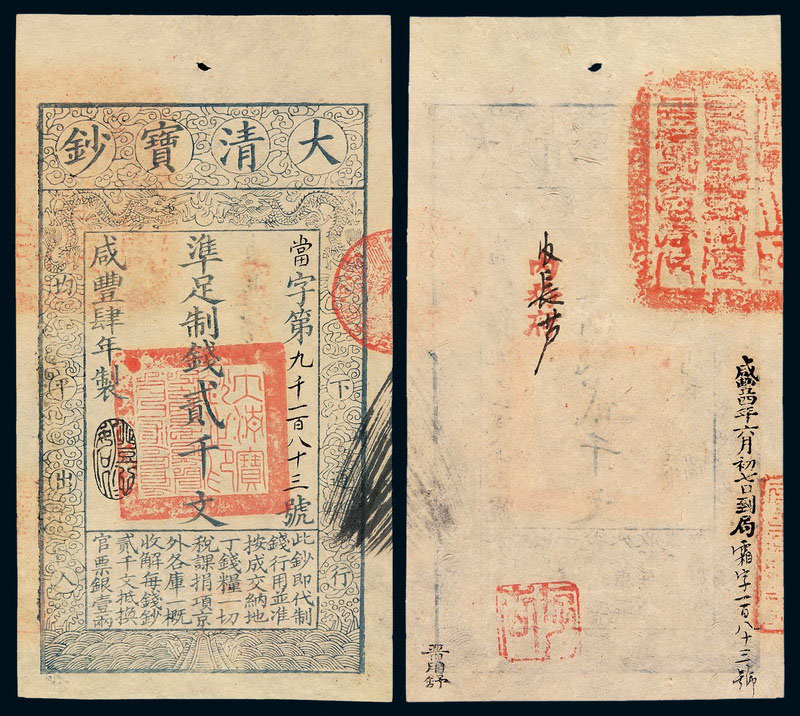 大清寶鈔
天下通行
當字第九千一百八十三號
準足制錢貳千文
咸豐肆年製
均平出入
此鈔即代制
錢行用並准
按成交納地
丁錢糧一切
稅課捐項京
外各庫一概
收解每錢鈔
貳千文抵換
官票銀壹兩
年六月初七日到局霜字一百八十三號